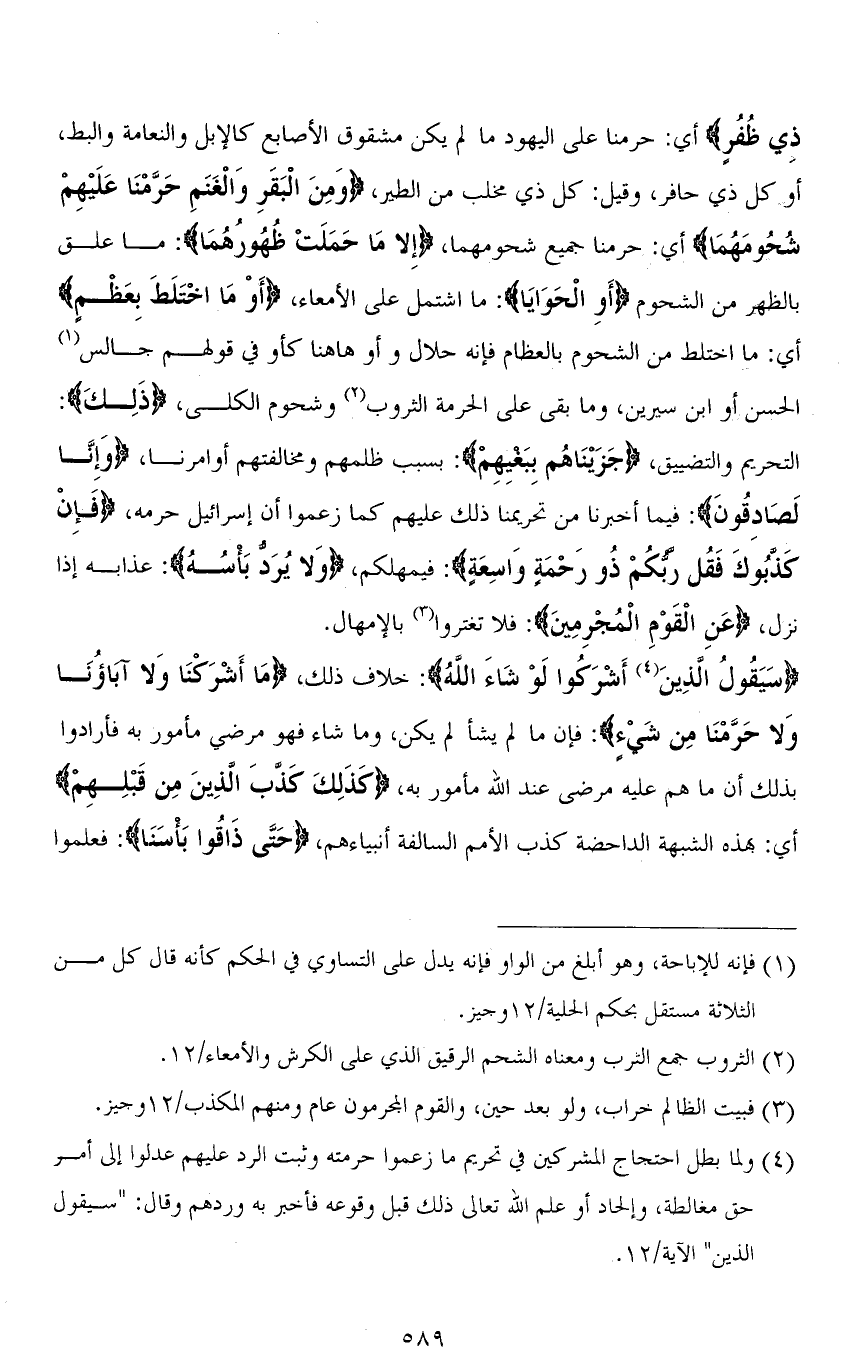 ذِي ظُفُرٍ﴾ أي: حرمنا على اليهود ما لم يكن مشقوق الأصابع كالإبل والنعامة والبط،
أو كل ذي حافر، وقيل: كل ذي مخلب من الطير، ﴿وَمِنَ الْبَقَرِ وَالْغَنَمِ حَرَّمْنَا عَلَيْهِمْ
شُحُومَهُمَا﴾ أي: حرمنا جميع شحومهما، ﴿إِلا مَا حَمَلَتْ ظُهُورُهُمَا﴾: مـــا علــق
بالظهر من الشحوم ﴿أَوِ الْحَوَايَا﴾: ما اشتمل على الأمعاء، ﴿أَوْ مَا اخْتَلَطَ بِعَظْـــمٍ﴾
أي: ما اختلط من الشحوم بالعظام فإنه حلال و أو هاهنا كأو في قولهـــم جـــالس(١)
الحسن أو ابن سيرين، وما بقى على الحرمة الثروب(٢) وشحوم الكلـــى، ﴿ذَلِـــكَ﴾:
التحريم والتضييق، ﴿جَزَيْنَاهُم بِبَغْيِهِمْ﴾: بسبب ظلمهم ومخالفتهم أوامرنـــا، ﴿وَإِنَّـــا
لَصَادِقُونَ﴾: فيما أخبرنا من تحريمنا ذلك عليهم كما زعموا أن إسرائيل حرمه، ﴿فَـإِنْ
كَذَّبُوكَ فَقُل رَّبُّكُمْ ذُو رَحْمَةٍ وَاسِعَةٍ﴾: فيمهلكم، ﴿وَلا يُرَدُّ بَأْسُـــهُ﴾: عذابـــه إذا
نزل، ﴿عَنِ الْقَوْمِ الْمُجْرِمِينَ﴾: فلا تغتروا(٣) بالإمهال.
﴿سَيَقُولُ الَّذِينَ(٤) أَشْرَكُوا لَوْ شَاءَ اللَّهُ﴾: خلاف ذلك، ﴿مَا أَشْرَكْنَا وَلا آبَاؤُنَـــا
وَلا حَرَّمْنَا مِن شَيْءٍ﴾: فإن ما لم يشأ لم يكن، وما شاء فهو مرضي مأمور به فأرادوا
بذلك أن ما هم عليه مرضى عند الله مأمور به، ﴿كَذَلِكَ كَذَّبَ الَّذِينَ مِن قَبْلِـــهِمْ﴾
أي: بهذه الشبهة الداحضة كذب الأمم السالفة أنبياءهم، ﴿حَتَّى ذَاقُوا بَأْسَنَا﴾: فعلموا
(١) فإنه للإباحة، وهو أبلغ من الواو فإنه يدل على التساوي في الحكم كأنه قال كل مـــن
الثلاثة مستقل بحكم الحلية/١٢وجيز.
(٢) الثروب جمع الثرب ومعناه الشحم الرقيق الذي على الكرش والأمعاء/١٢.
(٣) فبيت الظالم خراب، ولو بعد حين، والقوم المجرمون عام ومنهم المكذب/١٢وجيز.
(٤) ولما بطل احتجاج المشركين في تحريم ما زعموا حرمته وثبت الرد عليهم عدلوا إلى أمـــر
حق مغالطة، وإلحاد أو علم الله تعالى ذلك قبل وقوعه فأخبر به وردهم وقال: "سـيقول
الذين" الآية/١٢.
٥٨٩